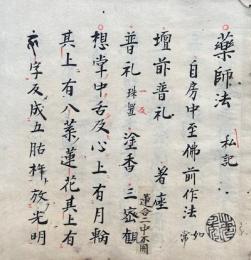 藥師法 私記
自房中至佛前作法 如常
壇前普礼 著座
普礼 一反 珠置 塗香 三密觀 蓮合二中不開
想掌中舌及心上有月輪
其上有八葉蓮花其上有
字反成五胋杵放光明